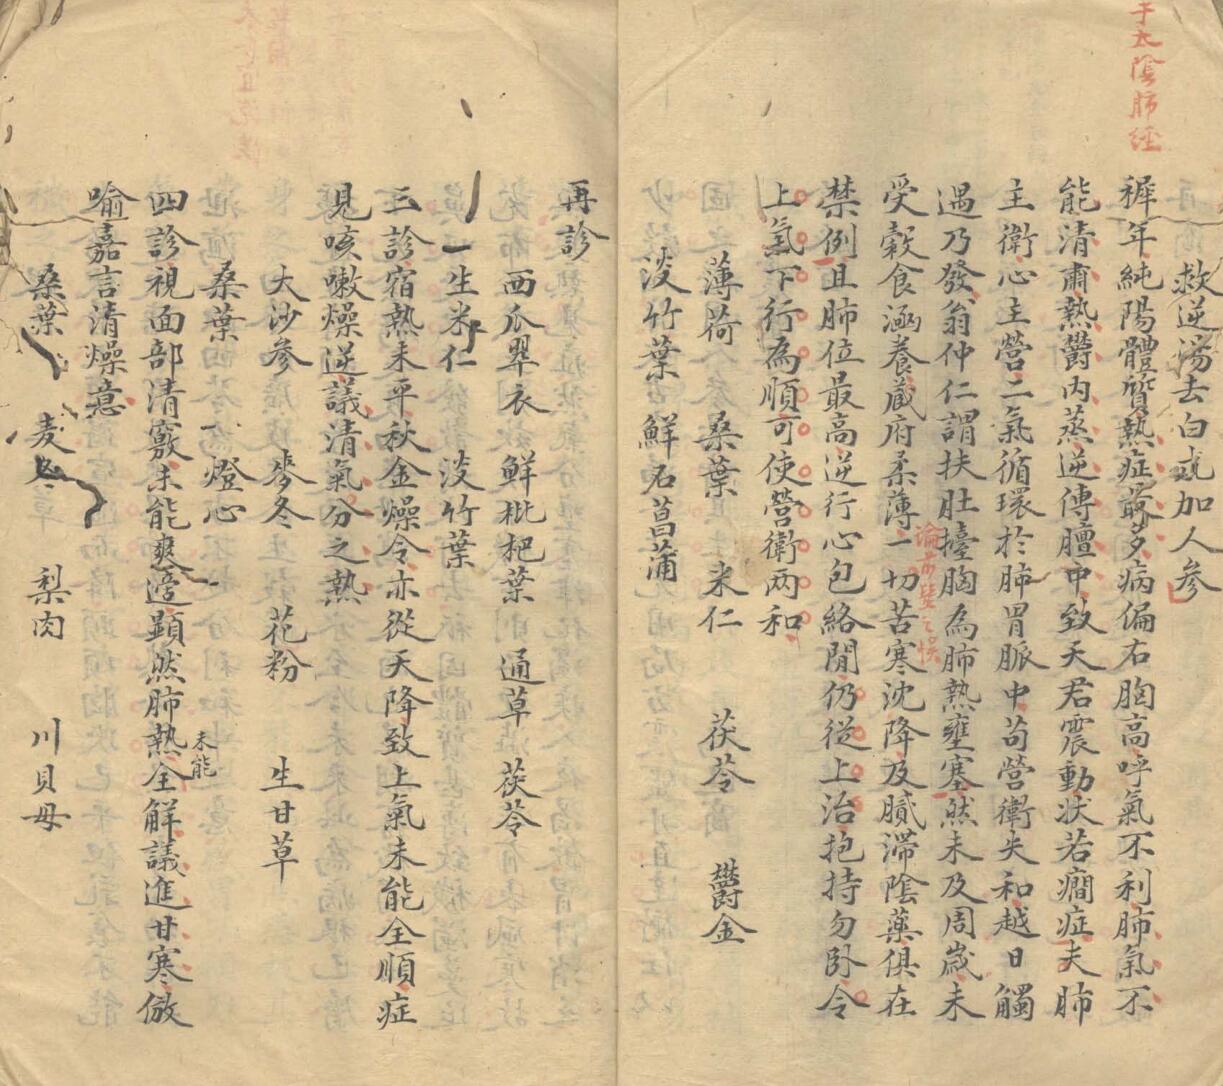 手太陰肺經
救逆湯去白或加人參
穉年純陽體質熱症最多病偏右胸高呼氣不利肺氣不
能清肅熱鬱內蒸逆傳膻中致天君震動狀若癇症夫肺
主衛心主營二氣循環於肺胃脈中苟營衛失和越日觸
遇乃發翁仲仁謂扶肚擡胸為肺熱壅塞然未及周歲未
受穀食涵養藏府柔薄一切苦寒沈降及膩滯陰藥俱在
論前醫之悞
禁例且肺位最高逆行心包絡閒仍從上治抱持勿卧令
上氣下行為順可使營衛两和
薄荷 桑葉 米仁 茯苓 鬱金
淡竹葉 鮮石菖蒲
再診
西瓜翠衣 鮮枇杷葉 通草 茯苓
生米仁 淡竹葉
三診宿熱未平秋金燥令亦從天降致上氣未能全順症
見咳嗽燥逆議清氣分之熱
大沙參 麥冬 花粉 生甘草
桑葉 燈心
四診視面部清竅未能爽邃顯然肺熱未能全解議進甘寒倣
喻嘉言清燥意
桑葉 麦冬 梨肉 川貝母